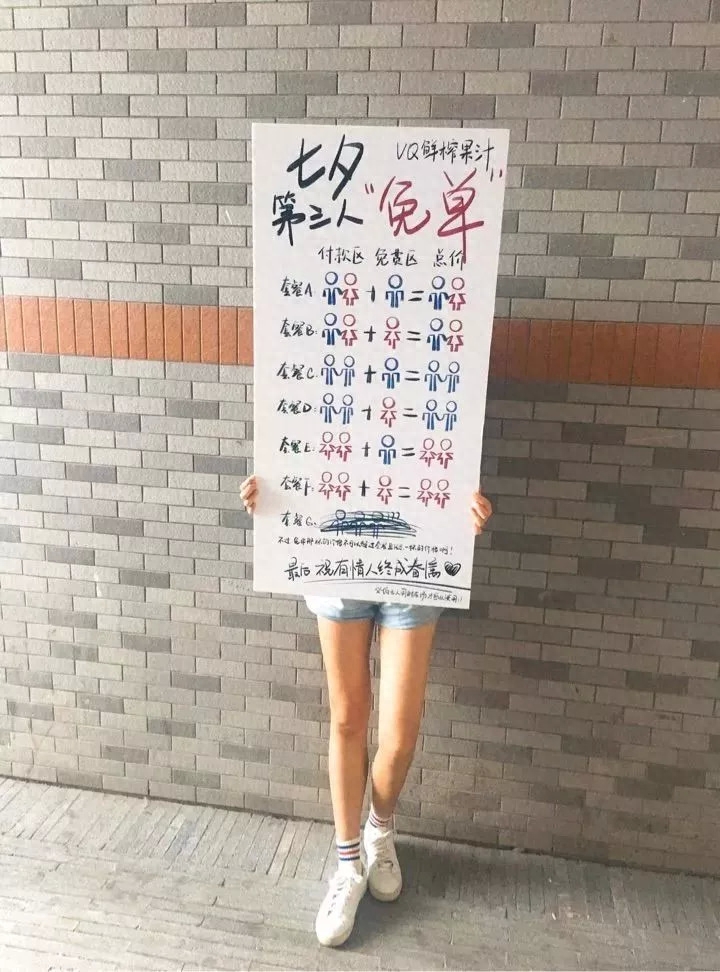 七夕 VQ鲜榨果汁
第三人“免单”
付款区 免费区 总价
套餐A: + =
套餐B: + =
套餐C: + =
套餐D: + =
套餐E: + =
套餐F: + =
套餐G:
最后 祝有情人终成眷属